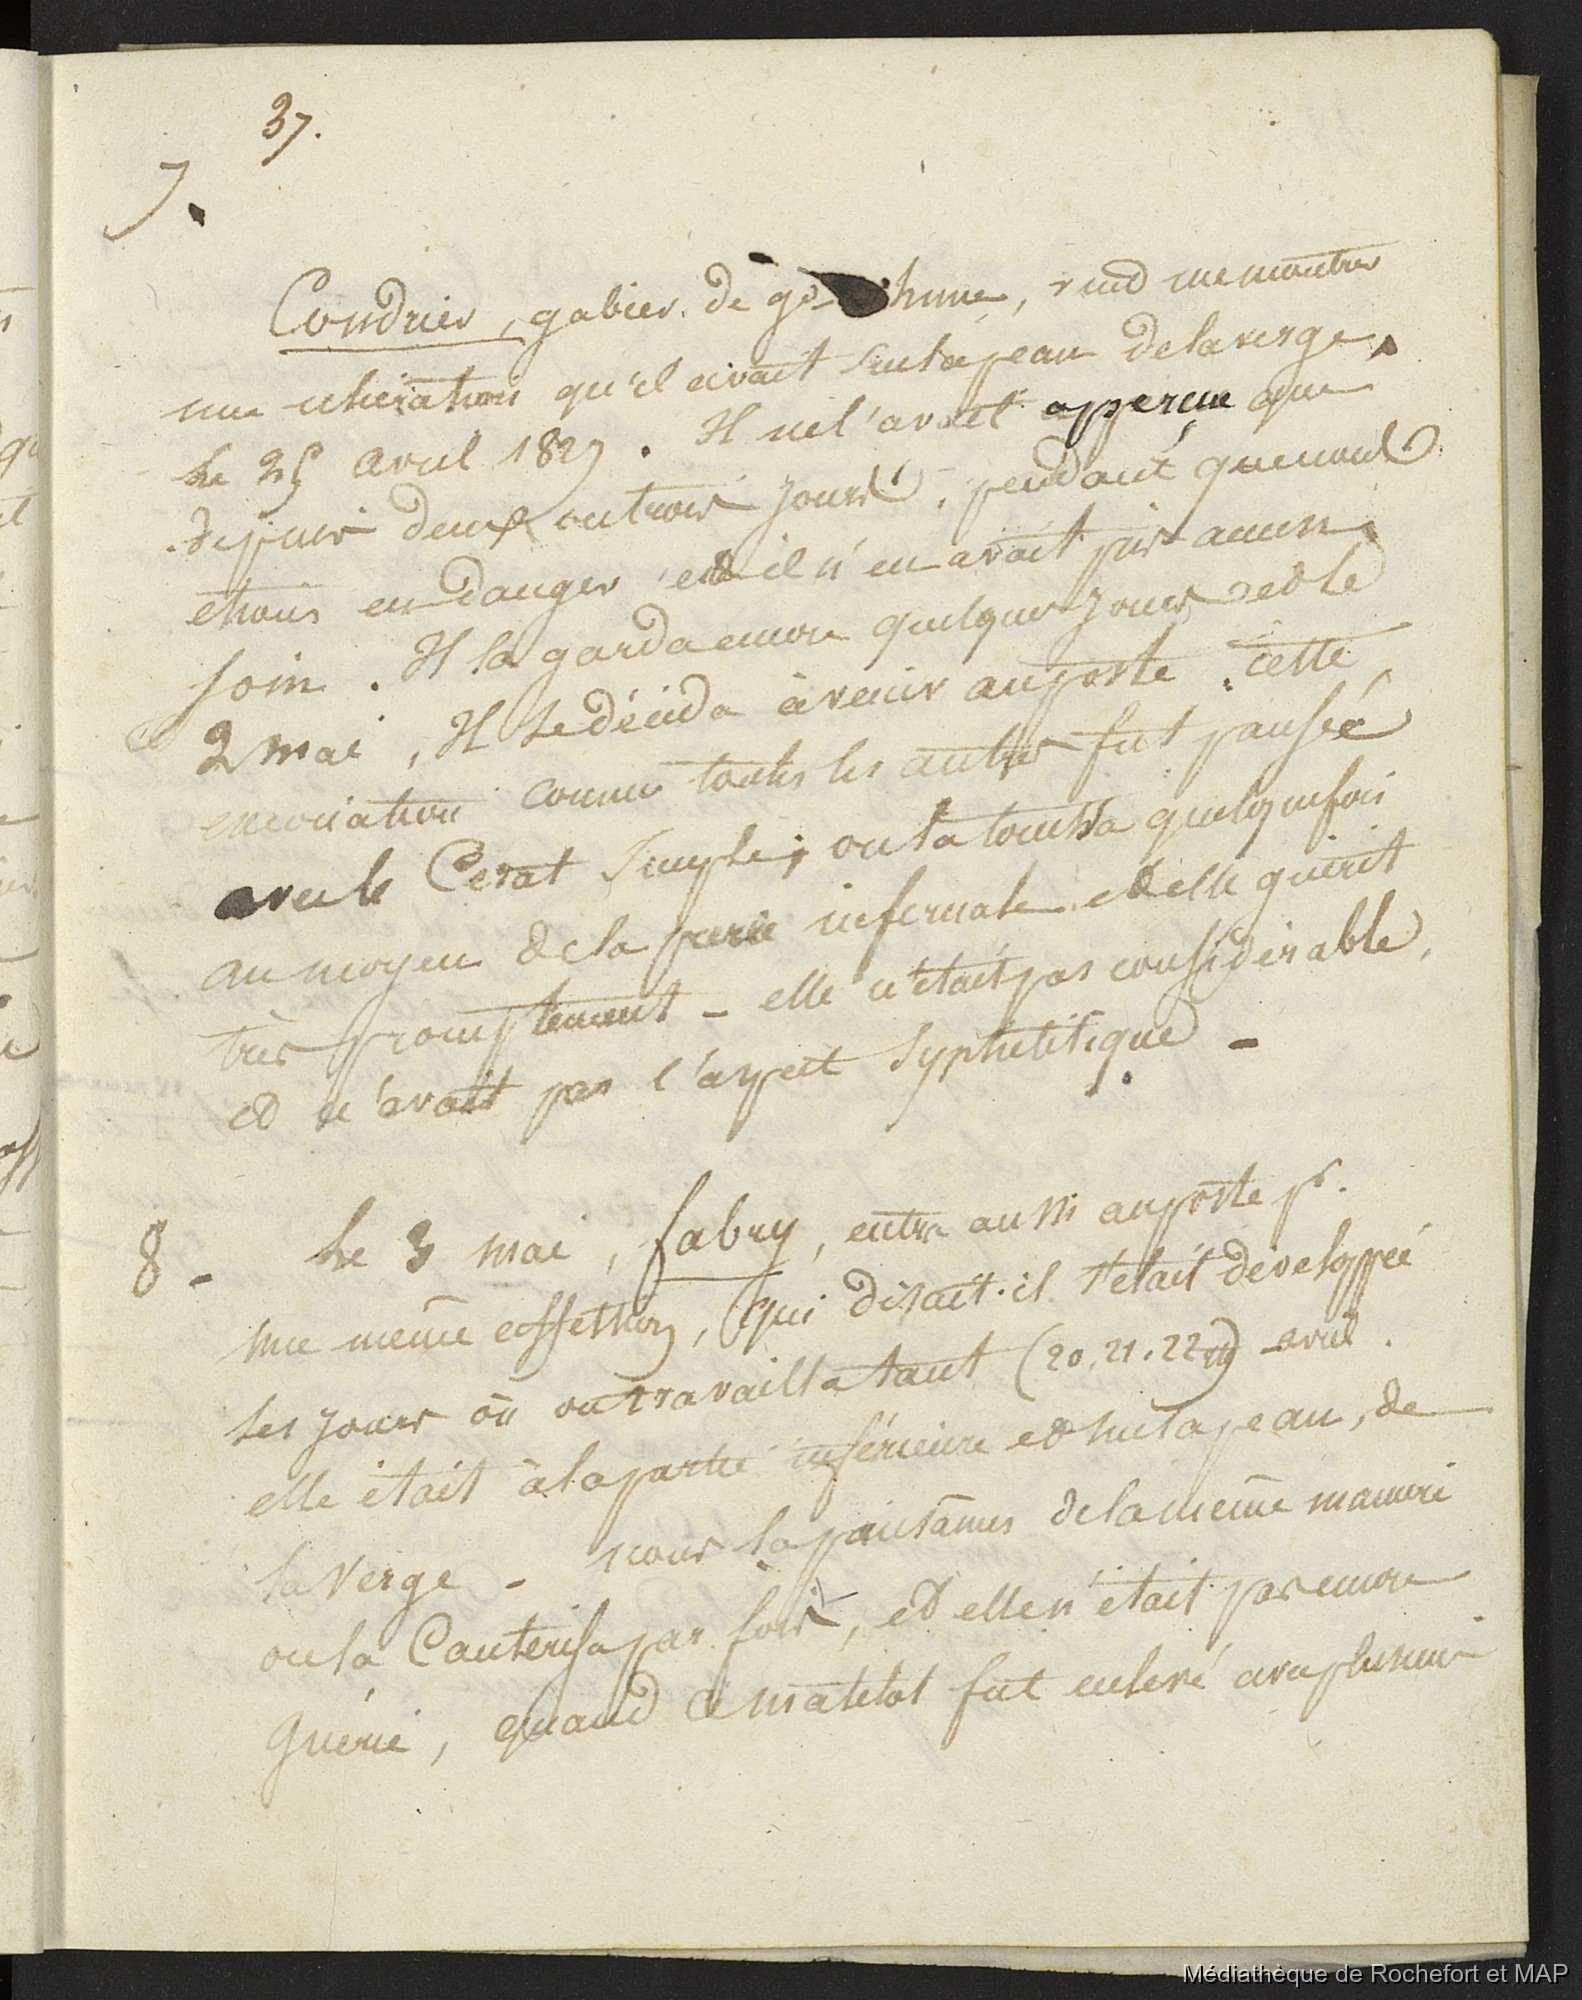 37.
7.
Condrier, gabier de gde hune, vint me montrer
une ulcération qu'il avait sur la peau de la verge,
le 25 avril 1827. Il ne l'avait apperçue que
depuis deux ou trois jours, pendant que nous
étions en danger et il n'en avait pris aucun
soin. Il la garda encore quelques jours et le
2 mai, Il se décida à venir au poste. cette
excoriation comme toutes les autres fut pansée
avec le Cerat Simple; on la toucha quelquefois
au moyen de la pierre infernale et elle guérit
très promptement - elle n'était pas considérable,
et n'avait pas l'aspect Syphilitique -
8 - Le 3 mai, fabry, entre aussi au poste pr.
une même affection, qui disait-il s'était développée
les jours où on travailla tant (20, 21, 22) avril.
elle était à la partie inférieure et sur la peau, de
la Verge - nous la pansâmes de la même manière
on la Cautérisa par fois, et elle n'était pas encore
Guérie, quand ce matelot fut enlevé avec plusieurs
Médiathèque de Rochefort et MAP